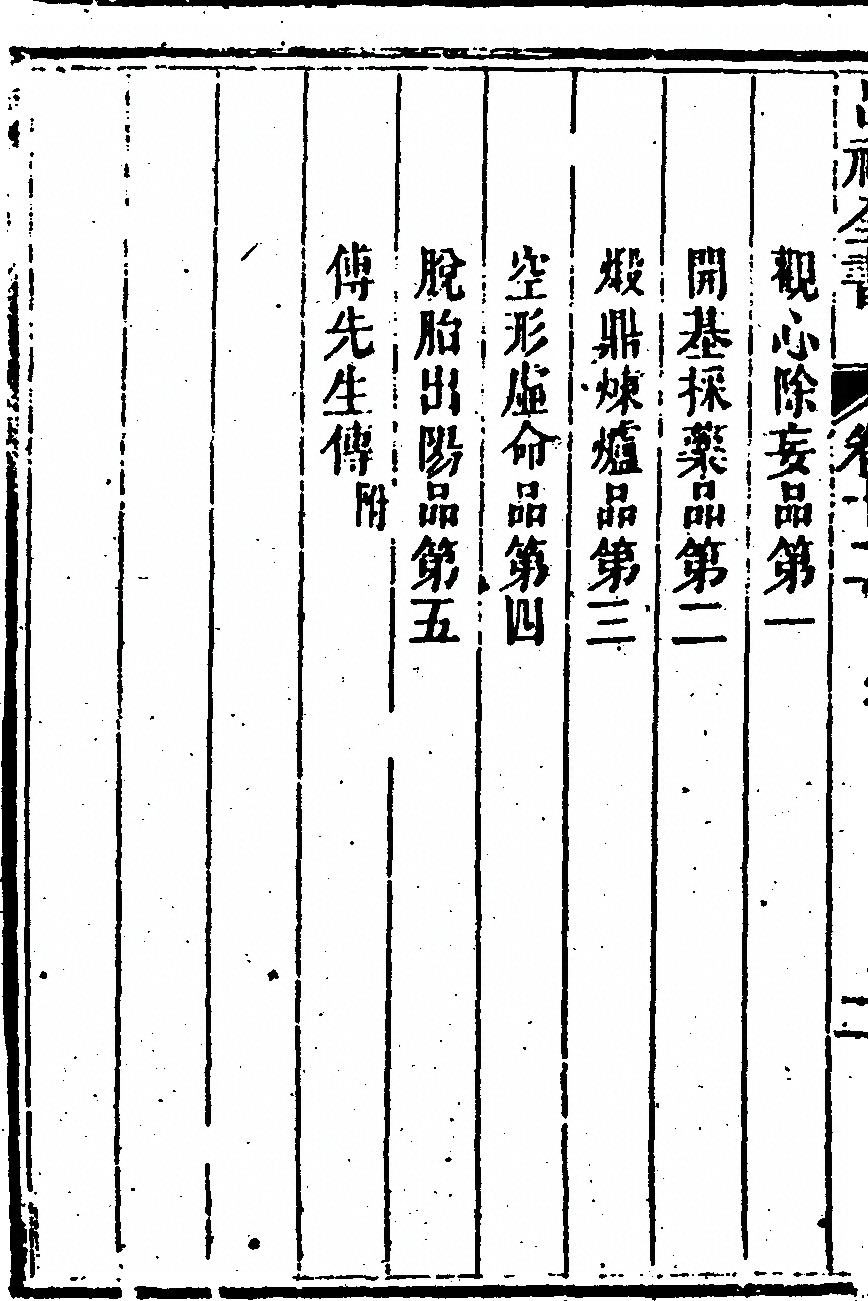 觀心除妄品第一
開基採藥品第二
煅鼎煉爐品第三
空形虛命品第四
脫胎出陽品第五
傅先生傳附